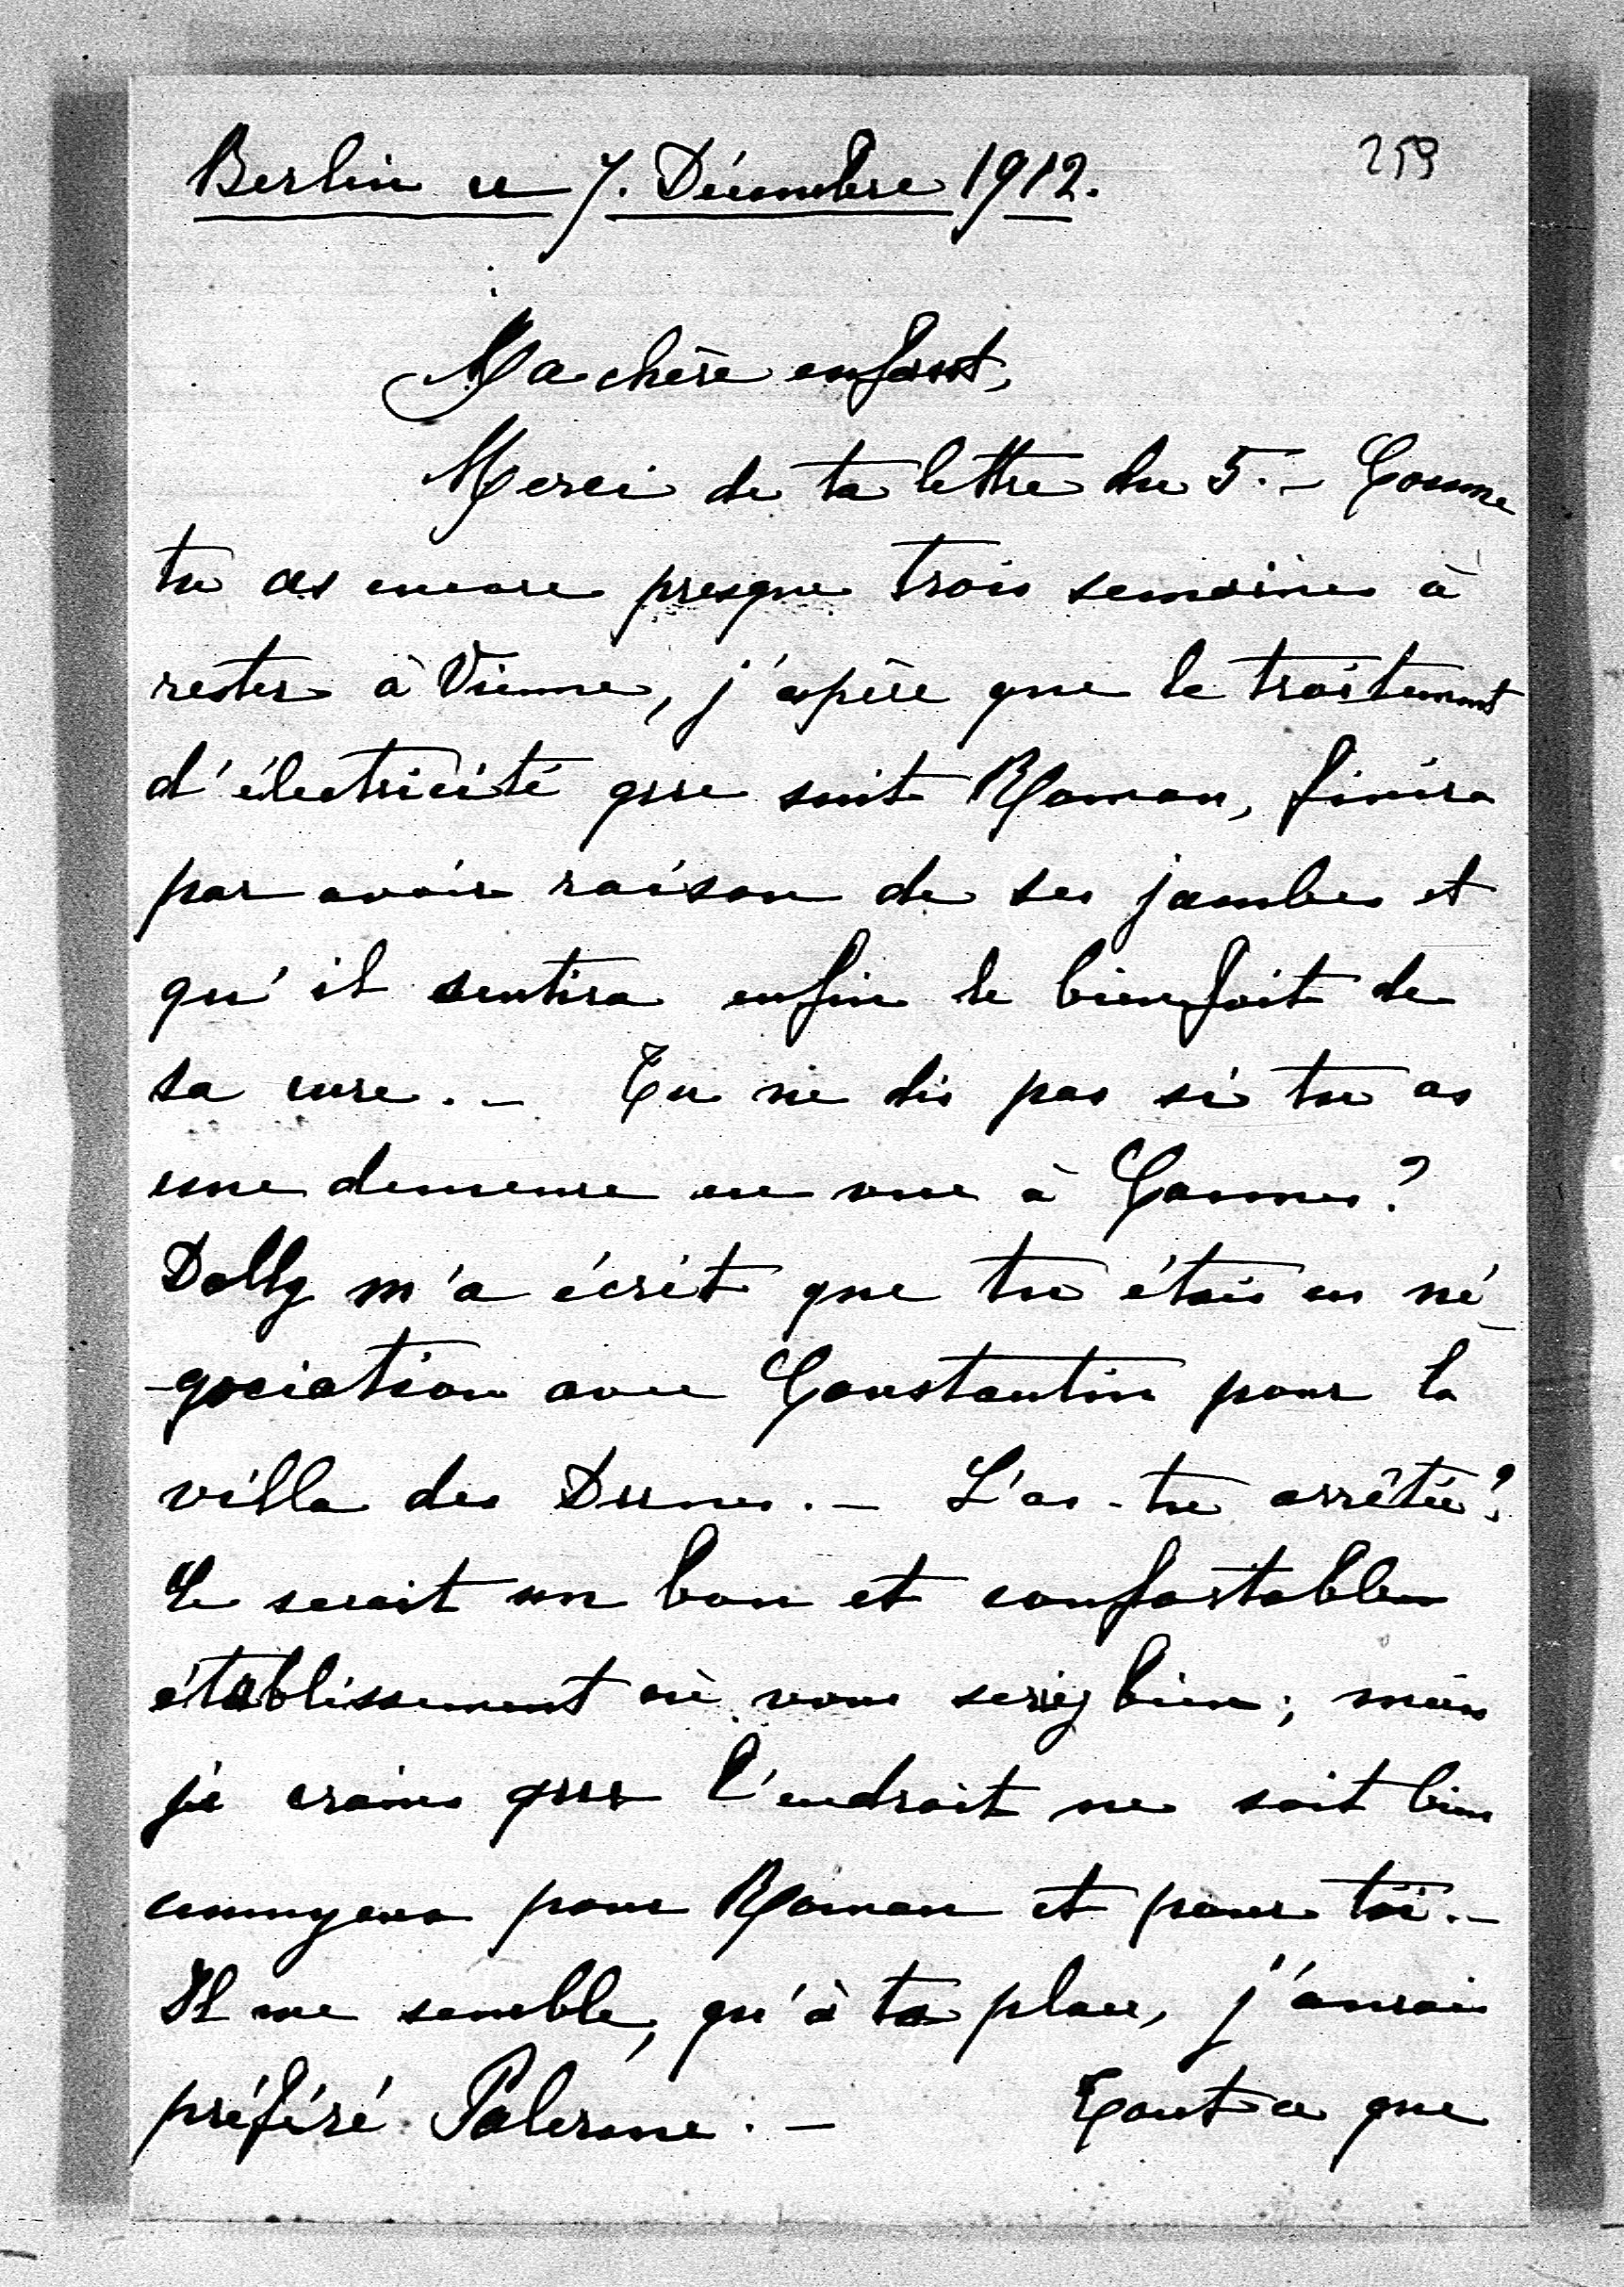 259
Berlin ce 7. Décembre 1912.
Ma chère enfant,
Merci de ta lettre du 5. – Comme
tu as encore presque trois semaines à
rester à Vienne, j'espère que le traitement
d'électricité que suit Roman, finira
par avoir raison de ses jambes et
qu'il sentira enfin le bienfait de
sa cure. – Tu ne dis pas si tu as
une demeure en vue à Cannes?
Dolly m'a écrit que tu étais en né-
-gociation avec Constantin pour la
villa des Dunes. – L'as-tu arrêtée?
Ce serait un bon et confortable
établissement où vous seriez bien; mais
je crains que l'endroit ne soit bien
ennuyeux pour Roman et pour toi. –
Il me semble, qu'à ta place, j'aurais
préféré Palerme. – Tout ce que